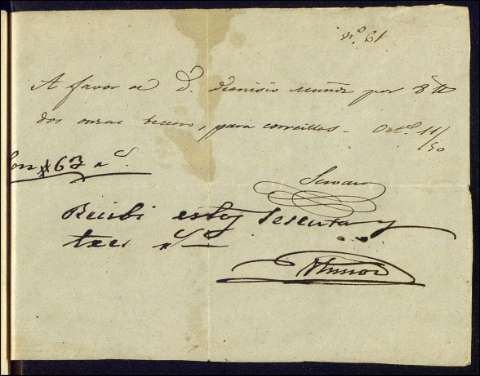 nº 61
A favor de D. Dionisio Muñoz por 8 ℔
dos onzas becerro, para correillas - Oct.e 11/50
Son # 63 r.s
Serrano
Recibi estos Sesenta y
tres r.s
Muñoz